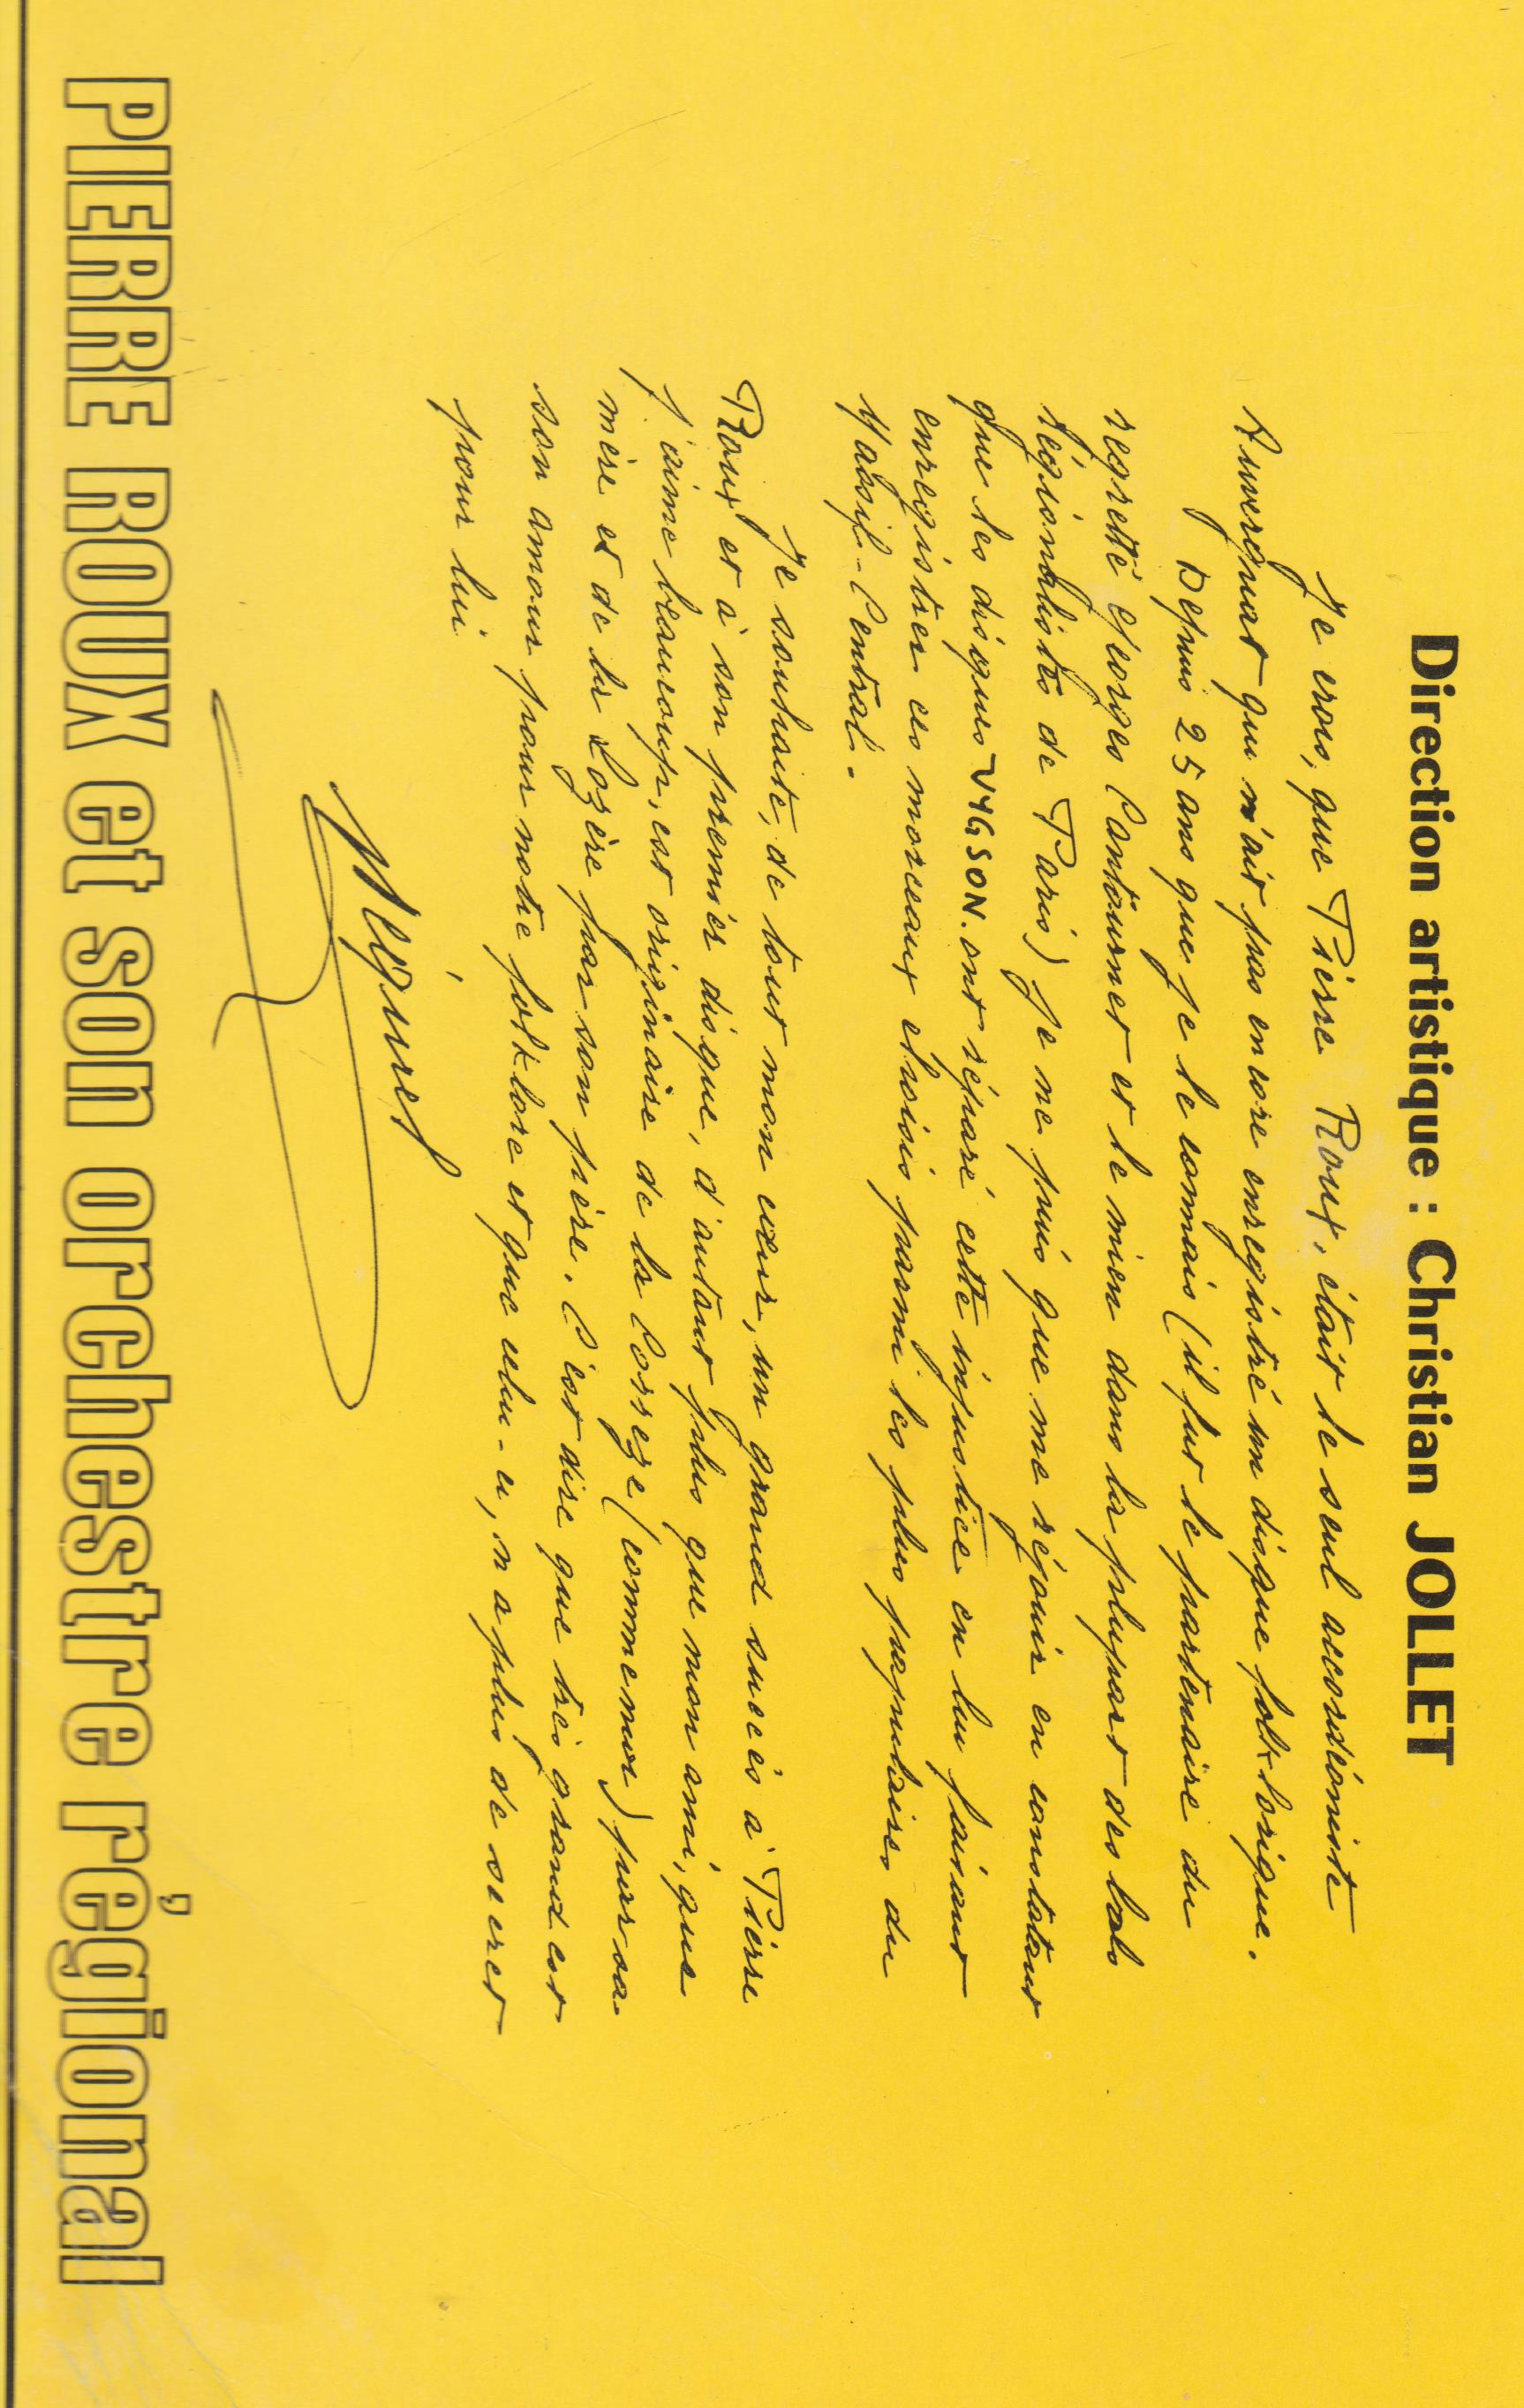 Direction artistique : Christian JOLLET
Je crois, que Pierre Roux, était le seul accordéoniste
Auvergnat qui n'ait pas encore enregistré un disque folklorique.
Depuis 25 ans que je le connais (il fut le partenaire du
regretté Georges Cantournet et le mien dans la plupart des bals
régionalistes de Paris) je ne puis que me réjouir en constatant
que les disques VYGSON. ont réparé cette injustice en lui faisant
enregistrer ces morceaux choisis parmi les plus populaires du
Massif-Central.
Je souhaite, de tout mon cœur, un grand succès à Pierre
Roux et à son premier disque, d'autant plus que mon ami, que
j'aime beaucoup, est originaire de la Corrèze (comme moi) par sa
mère et de la Lozère par son père. C'est dire que très grand est
son amour pour notre folklore et que celui-ci, n'a plus de secret
pour lui
Ségurel
PIERRE ROUX et son orchestre régional